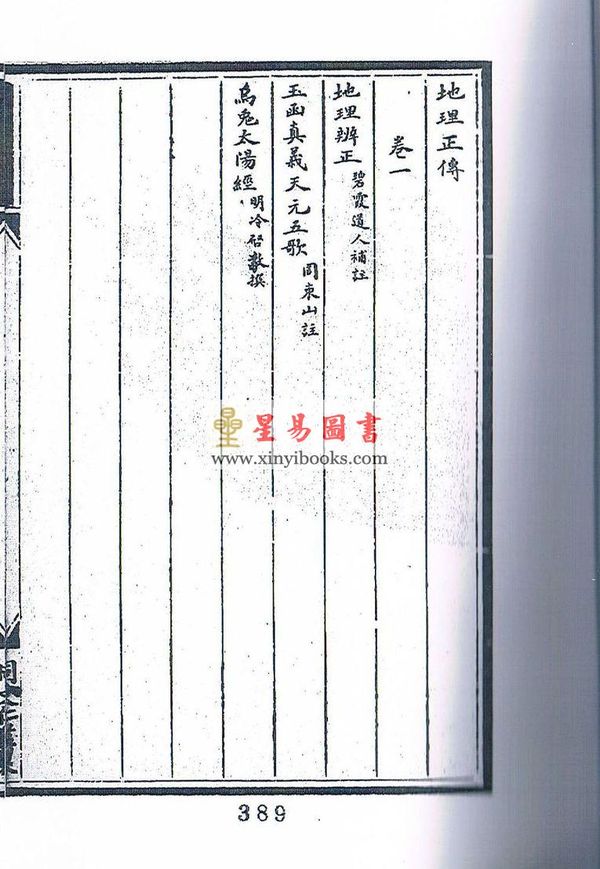 地理正傳
卷一
地理辨正 碧霞道人補註
玉函真義天元五歌 周東山註
烏兔太陽經 明冷啓敬撰
星易圖書
www.xinyibooks.com
389